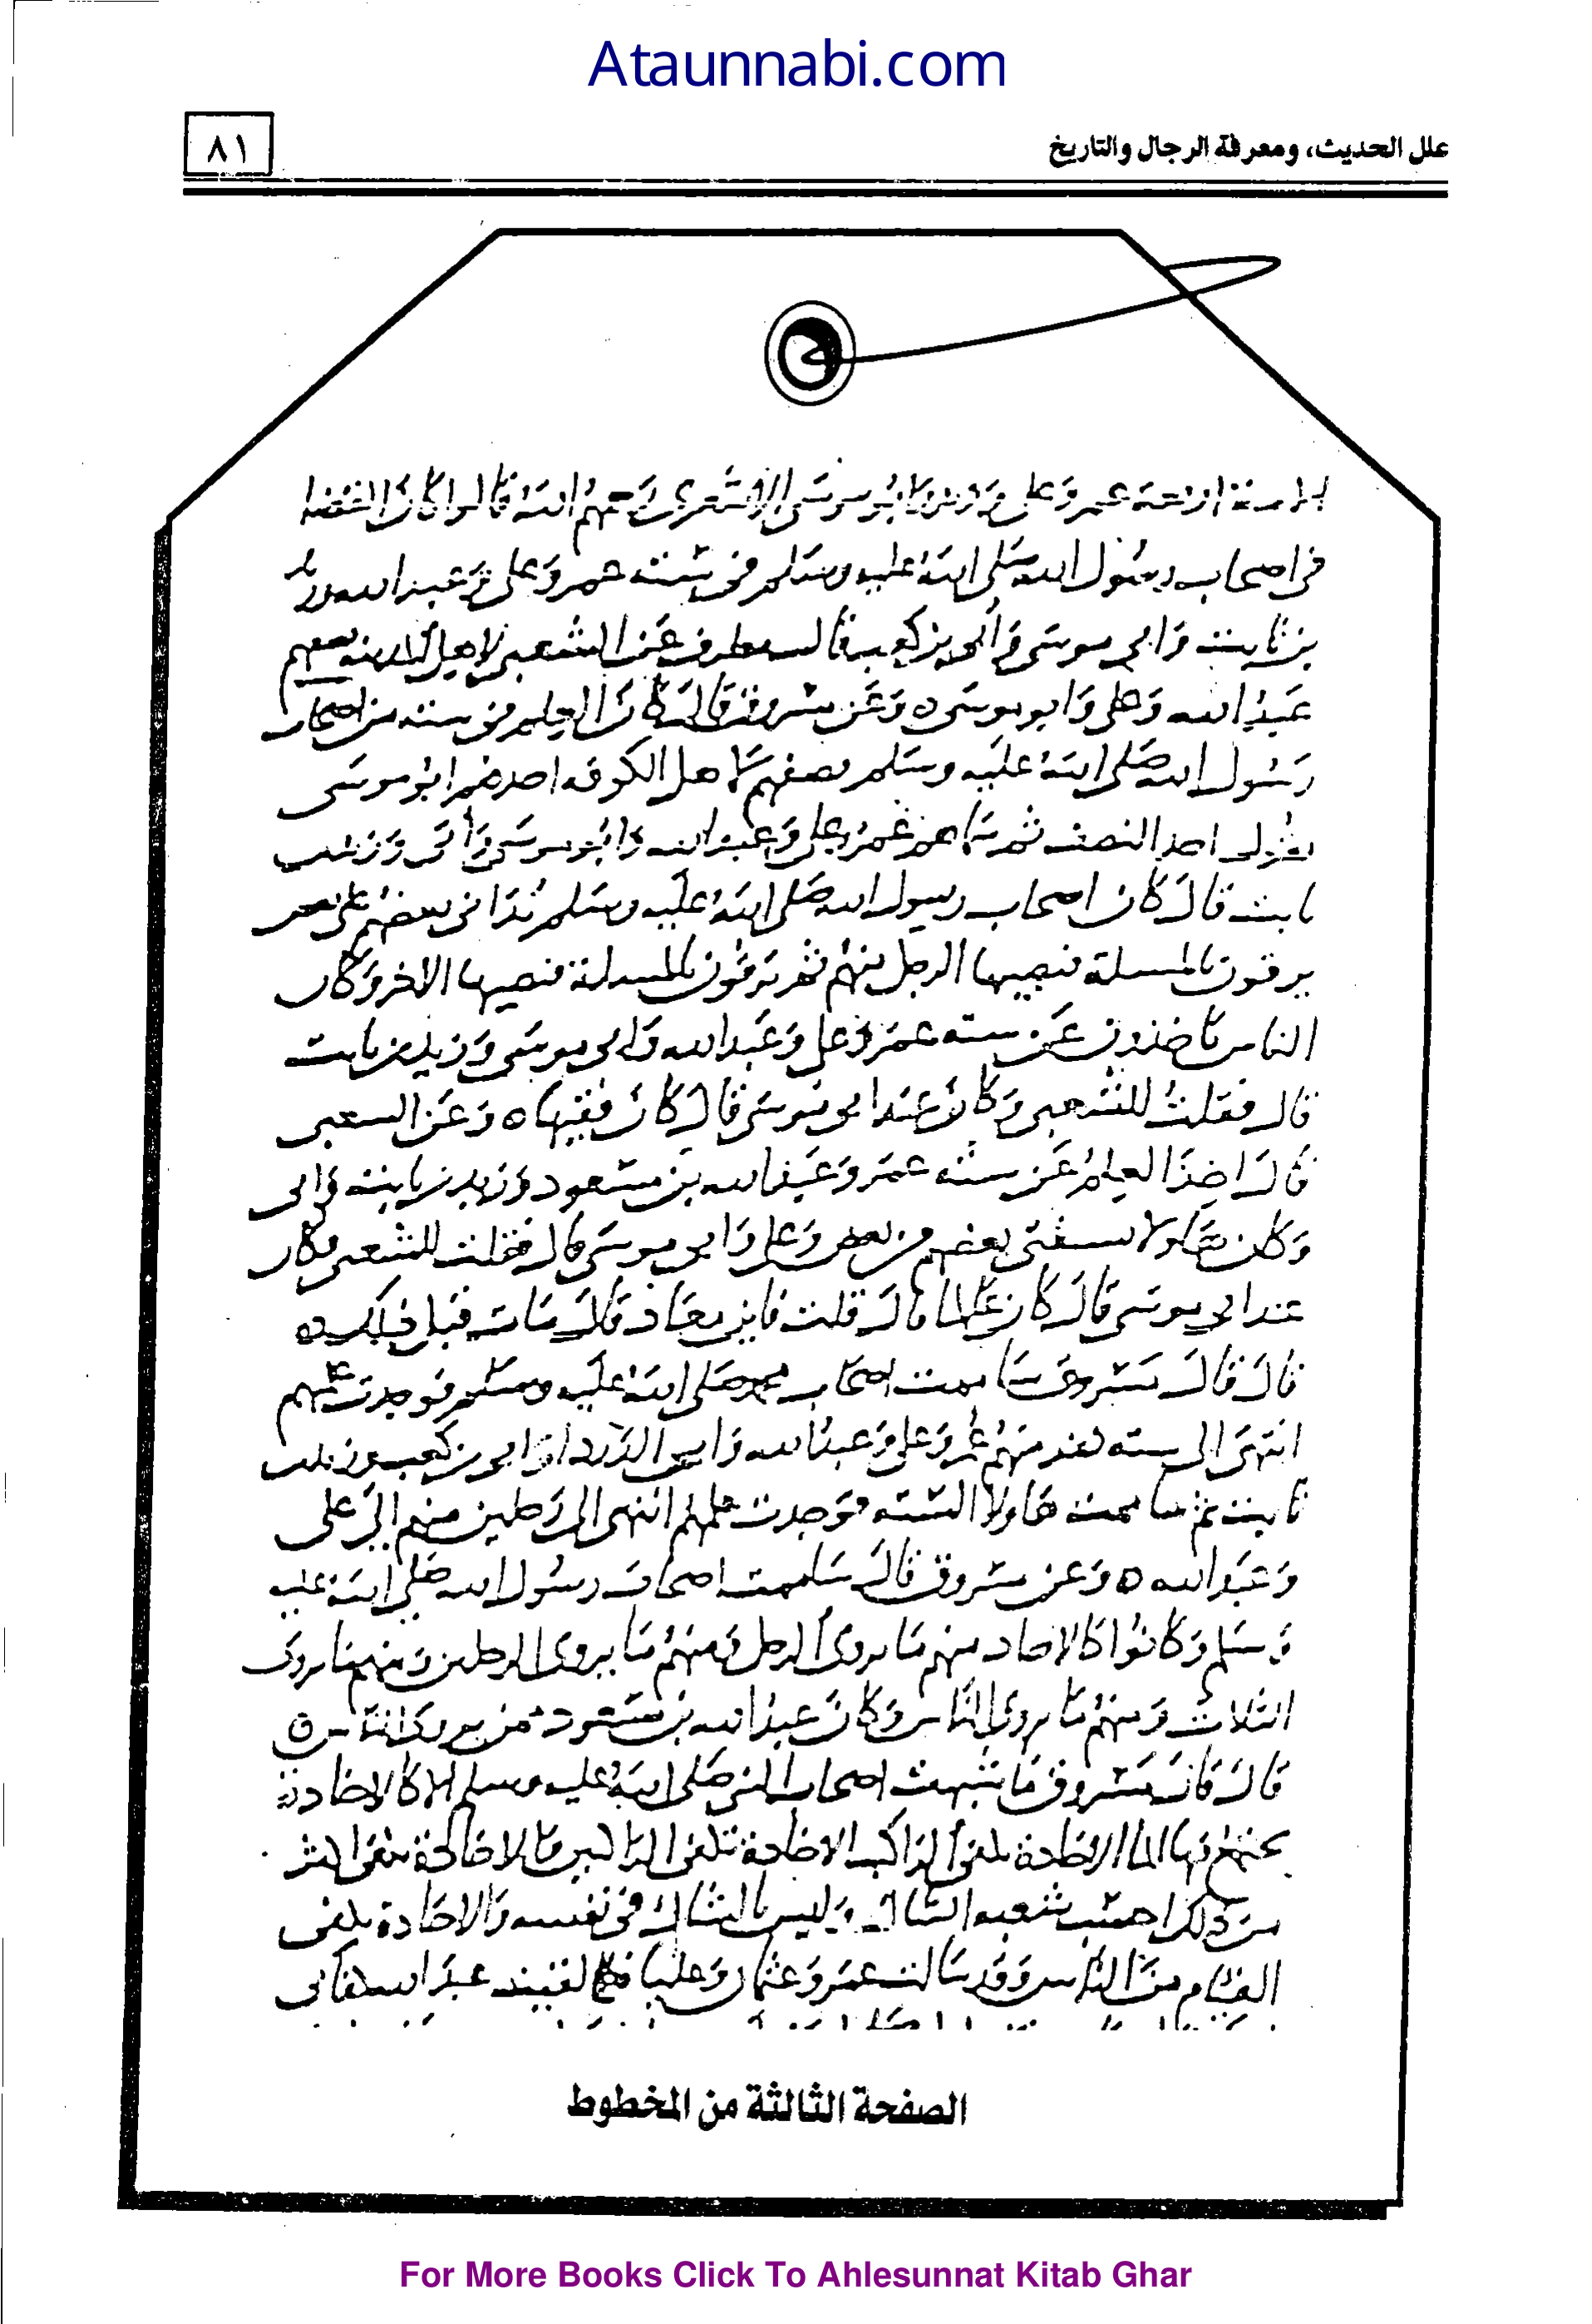 Ataunnabi.com
علل الحديث، ومعرفة الرجال والتاريخ
٨١
اربعة عمر وعلي وزيد وابو موسى الاشعري رحمهم الله قالوا كان القضا
في اصحاب رسول الله صلى الله عليه وسلم في ستة عمر وعلي وعبد الله وزيد
بن ثابت وابي موسى وأبي بن كعب قال مطرف عن الشعبي لاهل المدينة نصفهم
عبد الله وعلي وابو موسى ٥ وعن مسروق قال كان العلم في ستة من اصحاب
رسول الله صلى الله عليه وسلم نصفهم لاهل الكوفة احدهم ابو موسى
احد النصف ثم سماهم عمر وعلي وعبد الله وابو موسى وأبي وزيد بن
ثابت قال كان اصحاب رسول الله صلى الله عليه وسلم بعضهم على بعض
يرفون بالمسلة فيصيبها الرجل منهم ثم يرفون بالمسلة فيصيبها الاخر وكان
الناس ياخذون عن ستة عمر وعلي وعبد الله وابي موسى وزيد بن ثابت
قال فقلت للشعبي وكان عند ابي موسى قال كان فقيها ٥ وعن الشعبي
قال اخذ العلم عن ستة عمر وعبد الله بن مسعود وزيد بن ثابت وابي
وكان هاولا يستفتي بعضهم من بعض وعلي وابي موسى قال فقلت للشعبي وكان
عند ابي موسى قال كان عالما قال قلت فاين معاذ قال مات قبل ذلك ٥
قال قال مسروق شاممت اصحاب محمد صلى الله عليه وسلم فوجدت علمهم
انتهى الى ستة نفر منهم عمر وعلي وعبد الله وابي الدرداء وابي بن كعب وزيد بن
ثابت ثم شاممت هاولا الستة فوجدت علمهم انتهى الى رجلين منهم الى علي
وعبد الله ٥ وعن مسروق قال شاممت اصحاب رسول الله صلى الله عليه
وسلم وكانوا كالاخاذ منهم ما يروي الرجل ومنهم ما يروي الرجلين ومنهم ما يروي
الثلاث ومنهم ما يروي الناس وكان عبد الله بن مسعود ممن يروي الناس ٥
قال قال مسروق ما شبهت اصحاب النبي صلى الله عليه وسلم الا كالاخاذة
يجتمع فيها الما الاخاذة تكفي الراكب الاخاذة تكفي الراكبين والاخاذة تكفي اكثر
من ذلك احسب شعبة الشاك وليس بالشاك في نفسه والاخاذة تكفي
الفئام من الناس وقد سالت عمر وعثمان وعليا فلم لقيت عبد الله كفاني
الصفحة الثالثة من المخطوط
For More Books Click To Ahlesunnat Kitab Ghar